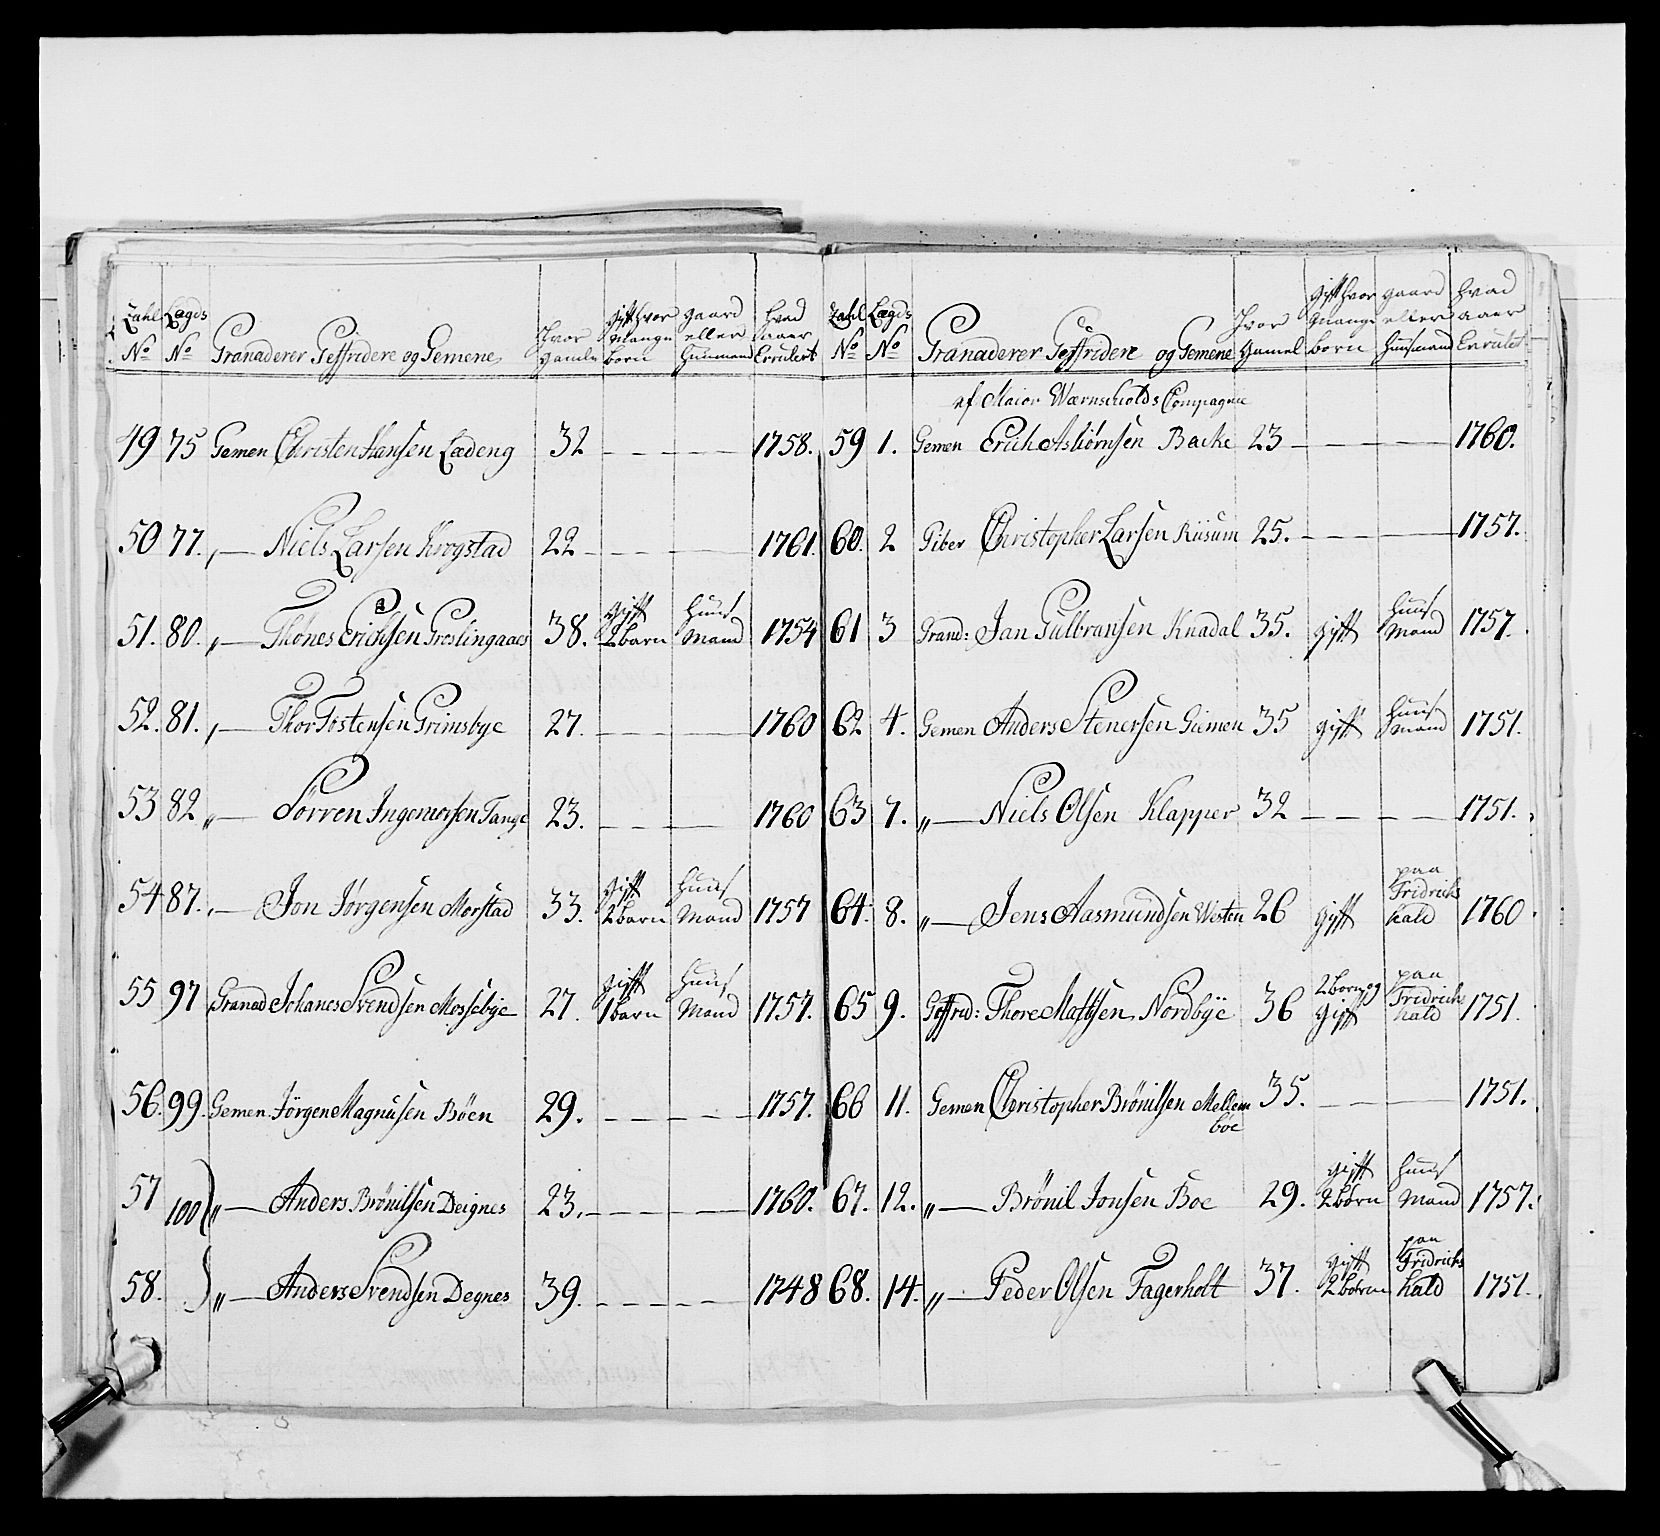 Zahl No Lægds No Granaderer Geffridere og Gemene Hvor gamle gift hvor Mange born gaard eller Huusmand hvad aaer Enrulert
49 75 Gemen Christen Hansen Ladeng 32 – – – – 1758.
50 77. „— Niels Larsen Krogstad 22 – – – – 1761
51. 80. „— Thones Erichsen Greslingaas 38. gift 2 barn Huus Mand 1754
52. 81. „— Thor Tostensen Grimsbye 27. – – – – 1760
53 82 „— Sörren Ingemorsen Tange 23. – – – – 1760
54 87. „— Jon Jörgensen Morstad 33. gift 2 barn Huus Mand 1757
55 97 Granad Johanes Svendsen Mossebye 27. gift 1 barn Huus Mand 1757.
56. 99. Gemen Jörgen Magnusen Böen 29. – – – – 1757.
57 100 „— Anders Brönilsen Deignes 23. – – – – 1760.
58. „— Anders Svendsen Degnes 39. – – – – 1748
Zahl No Lægds No Granaderer Geffridere og Gemene Hvor Gamel gift hvor Mange born gaard eller Huusmand hvad aaer Enrulet
af Maior Wærnscholds Compagnie
59 1. Gemen Erich Asbiörnsen Backe 23 – – – – 1760.
60. 2 Piber Christopher Larsen Riisum 25. – – – – 1757.
61 3 Grand: Jan Gulbransen Knadal 35. gift Huus Mand 1757.
62 4. Gemen Anders Stenersen Giemen 35 gift Huus Mand 1751.
63 7. „— Niels Olsen Klapper 32 – – – – 1751.
64. 8. „— Jens Aasmundsen Westen 26 gift paa Fridrichs hald 1760
65 9. Geffrid: Thore Mattsen Nordbye 36 2 born og gift paa Fridrichs hald 1751.
66 11. Gemen Christopher Brönilsen Mellem böe 35. – – – 1751.
67. 12. „— Brönil Jonsen Boe 29. gift 2 börn Huus Mand 1757.
68. 14. „— Peder Olsen Fagerholt 37. gift 2 börn paa Fridrichs hald 1751.